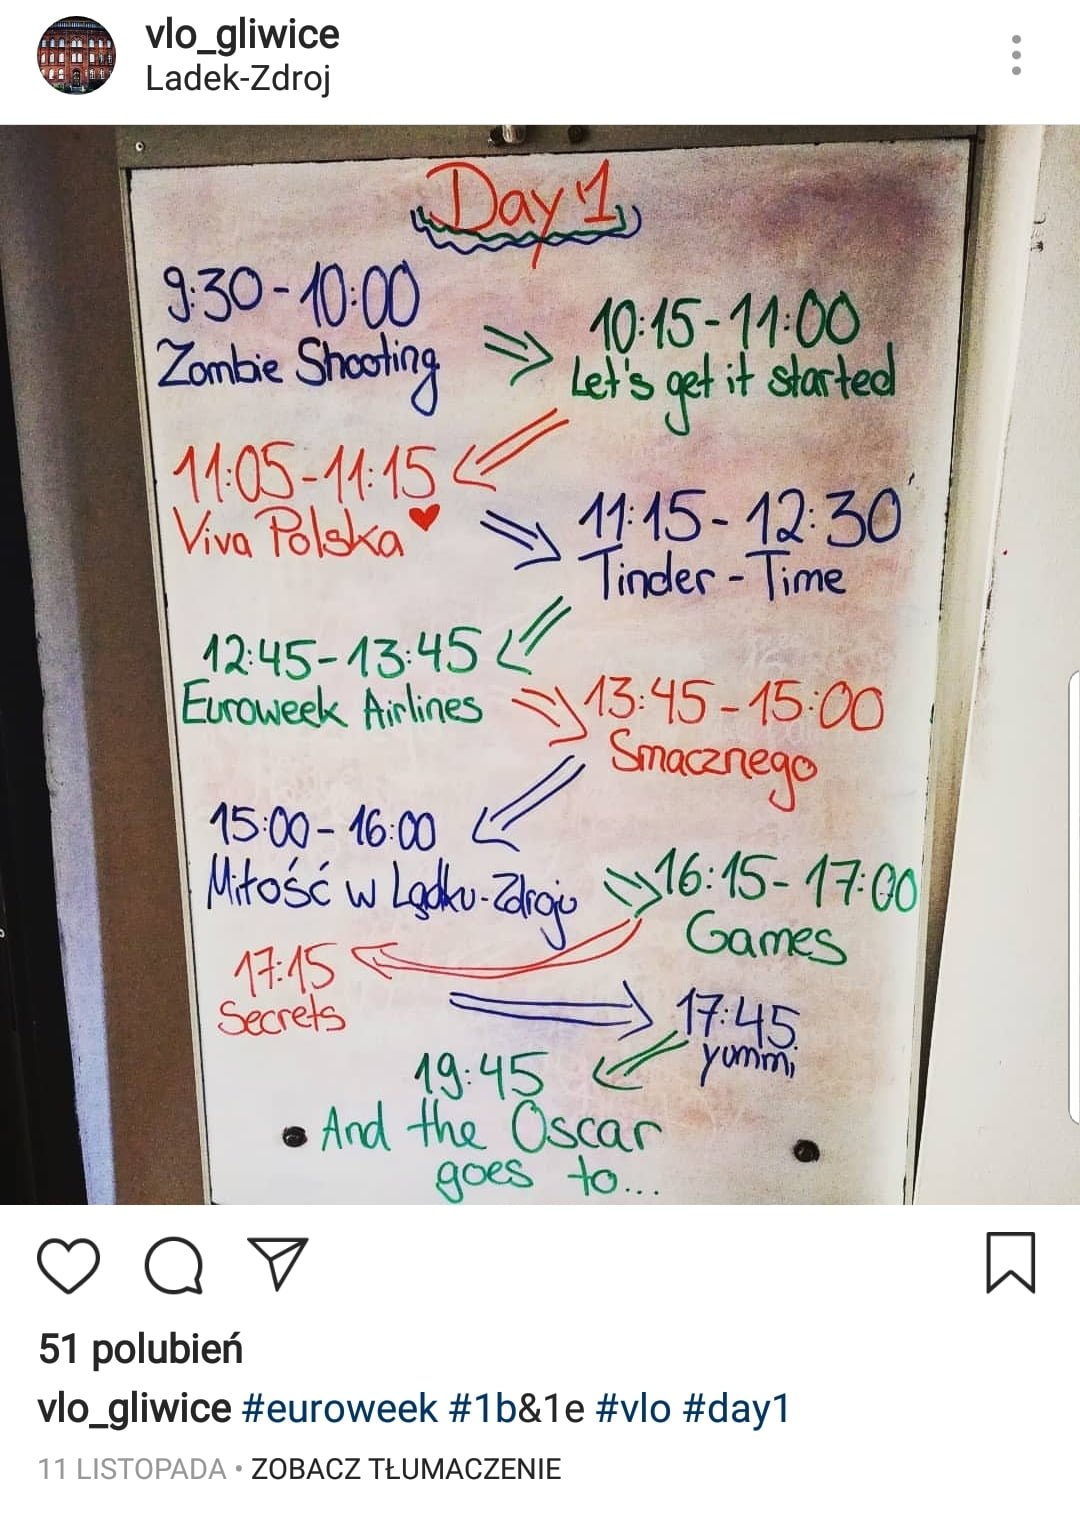 vlo_gliwice
Ladek-Zdroj
Day 1
9:30-10:00
Zombie Shooting
10:15-11:00
Let's get it started
11:05-11:15
Viva Polska
11:15-12:30
Tinder-Time
12:45-13:45
Euroweek Airlines
13:45-15:00
Smacznego
15:00-16:00
Miłość w Lądku-Zdroju
16:15-17:00
Games
17:15
Secrets
17:45
yummi
19:45
And the Oscar
goes to...
51 polubień
vlo_gliwice #euroweek #1b&1e #vlo #day1
11 LISTOPADA • ZOBACZ TŁUMACZENIE